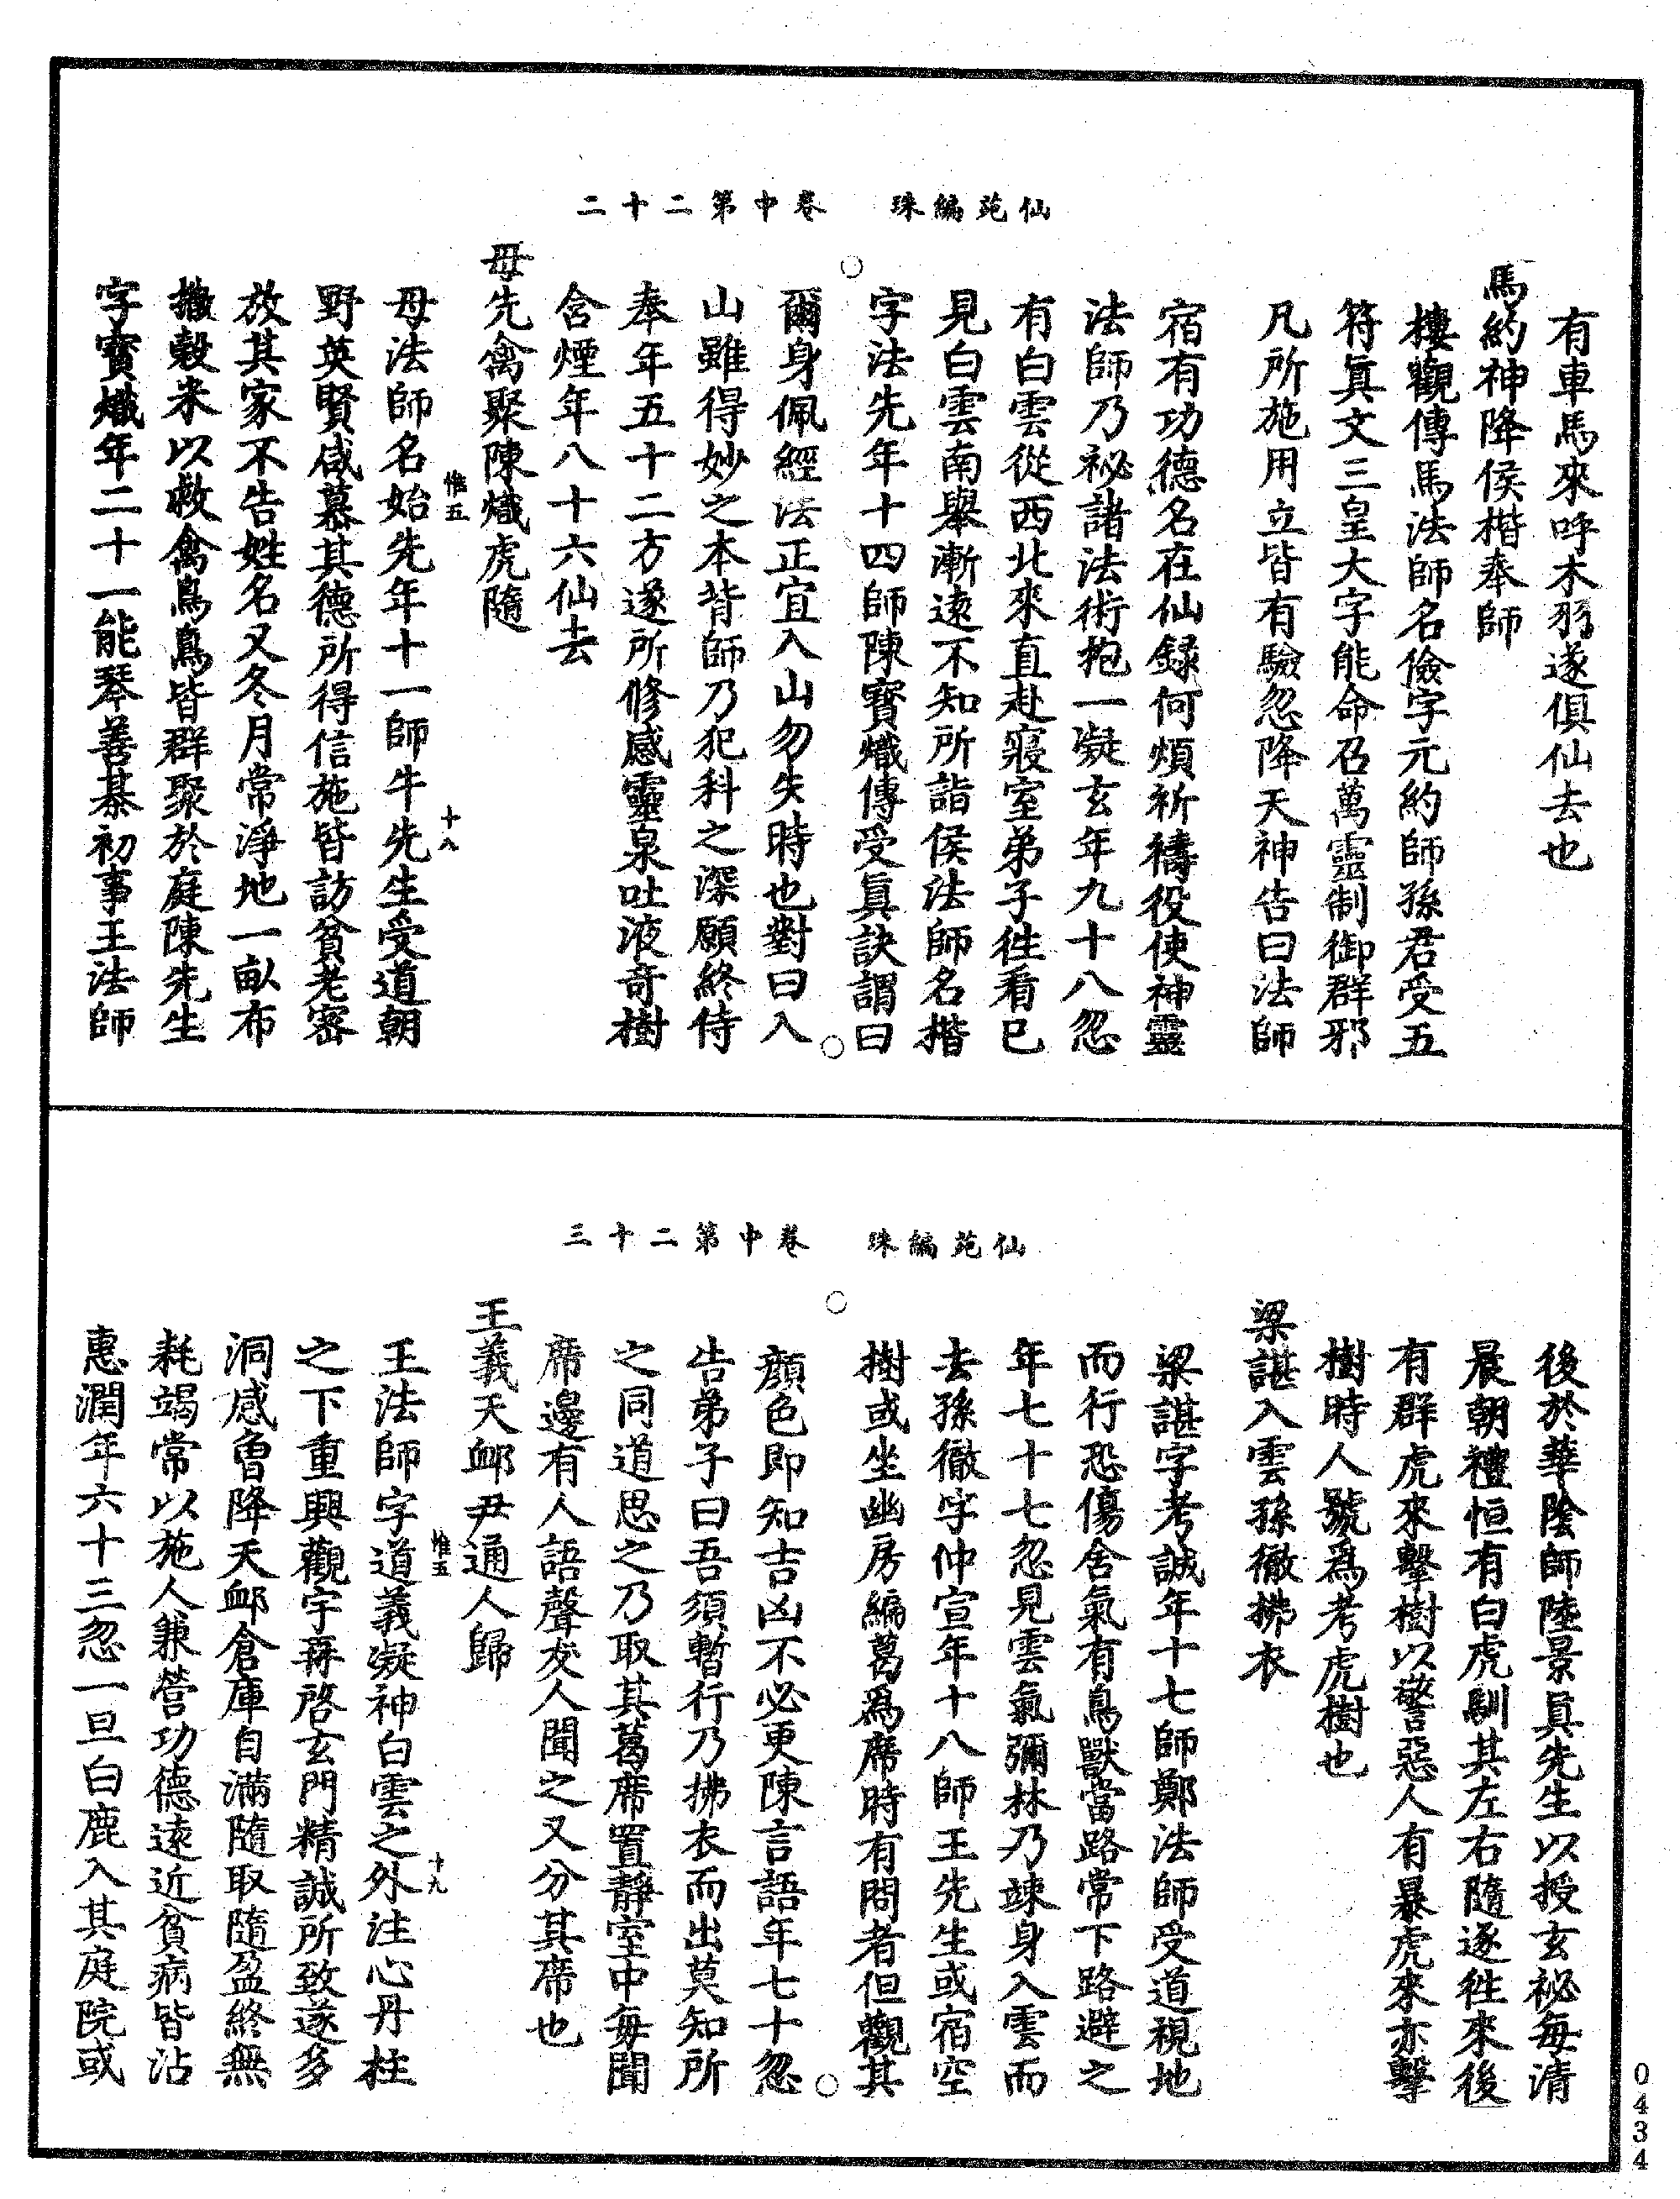 仙苑編珠　卷中第二十二
有車馬來呼木羽遂俱仙去也
馬約神降侯楷奉師
樓觀傳馬法師名儉字元約師孫君受五
符眞文三皇大字能命召萬靈制御群邪
凡所施用立皆有驗忽降天神告曰法師
宿有功德名在仙錄何煩祈禱役使神靈
法師乃祕諸法術抱一凝玄年九十八忽
有白雲從西北來直赴寢室弟子徃看已
見白雲南舉漸遠不知所詣侯法師名揩
字法先年十四師陳寳熾傳受眞訣謂曰
爾身佩經法正宜入山勿失時也對曰入
山雖得妙之本背師乃犯科之深願終侍
奉年五十二方遂所修感靈泉吐液奇樹
含煙年八十六仙去
母先禽聚陳熾虎隨
母法師名始先年十一師牛先生受道朝
惟五
十八
野英賢咸慕其德所得信施皆訪貧老密
放其家不告姓名又冬月常淨地一畝布
撒穀米以救禽鳥鳥皆群聚於庭陳先生
字寳熾年二十一能琴善棊初事王法師
仙苑編珠　卷中第二十三
後於華陰師陸景眞先生以授玄祕每清
晨朝禮恒有白虎馴其左右隨逐徃來後
有群虎來擊樹以警惡人有暴虎來亦擊
樹時人號爲考虎樹也
梁諶入雲孫徹拂衣
梁諶字考誠年十七師鄭法師受道視地
而行恐傷含氣有鳥獸當路常下路避之
年七十七忽見雲氣彌林乃竦身入雲而
去孫徹字仲宣年十八師王先生或宿空
樹或坐幽房編葛爲席時有問者但觀其
顏色即知吉凶不必更陳言語年七十忽
告弟子曰吾須暫行乃拂衣而出莫知所
之同道思之乃取其葛席置靜室中每聞
席邊有人語聲友人聞之又分其席也
王義天䘏尹通人歸
王法師字道義凝神白雲之外注心丹柱
惟五
十九
之下重興觀宇再啓玄門精誠所致遂多
洞感魯降天䘏倉庫自滿隨取隨盈終無
耗竭常以施人兼營功德遠近貧病皆沾
惠潤年六十三忽一旦白鹿入其庭院或
0434